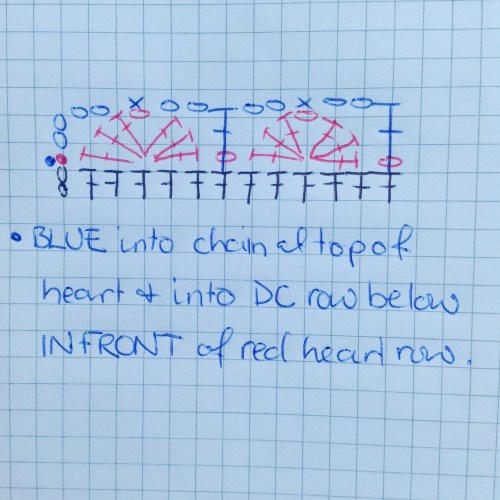 • BLUE into chain at top of
heart & into DC row below
IN FRONT of red heart row.